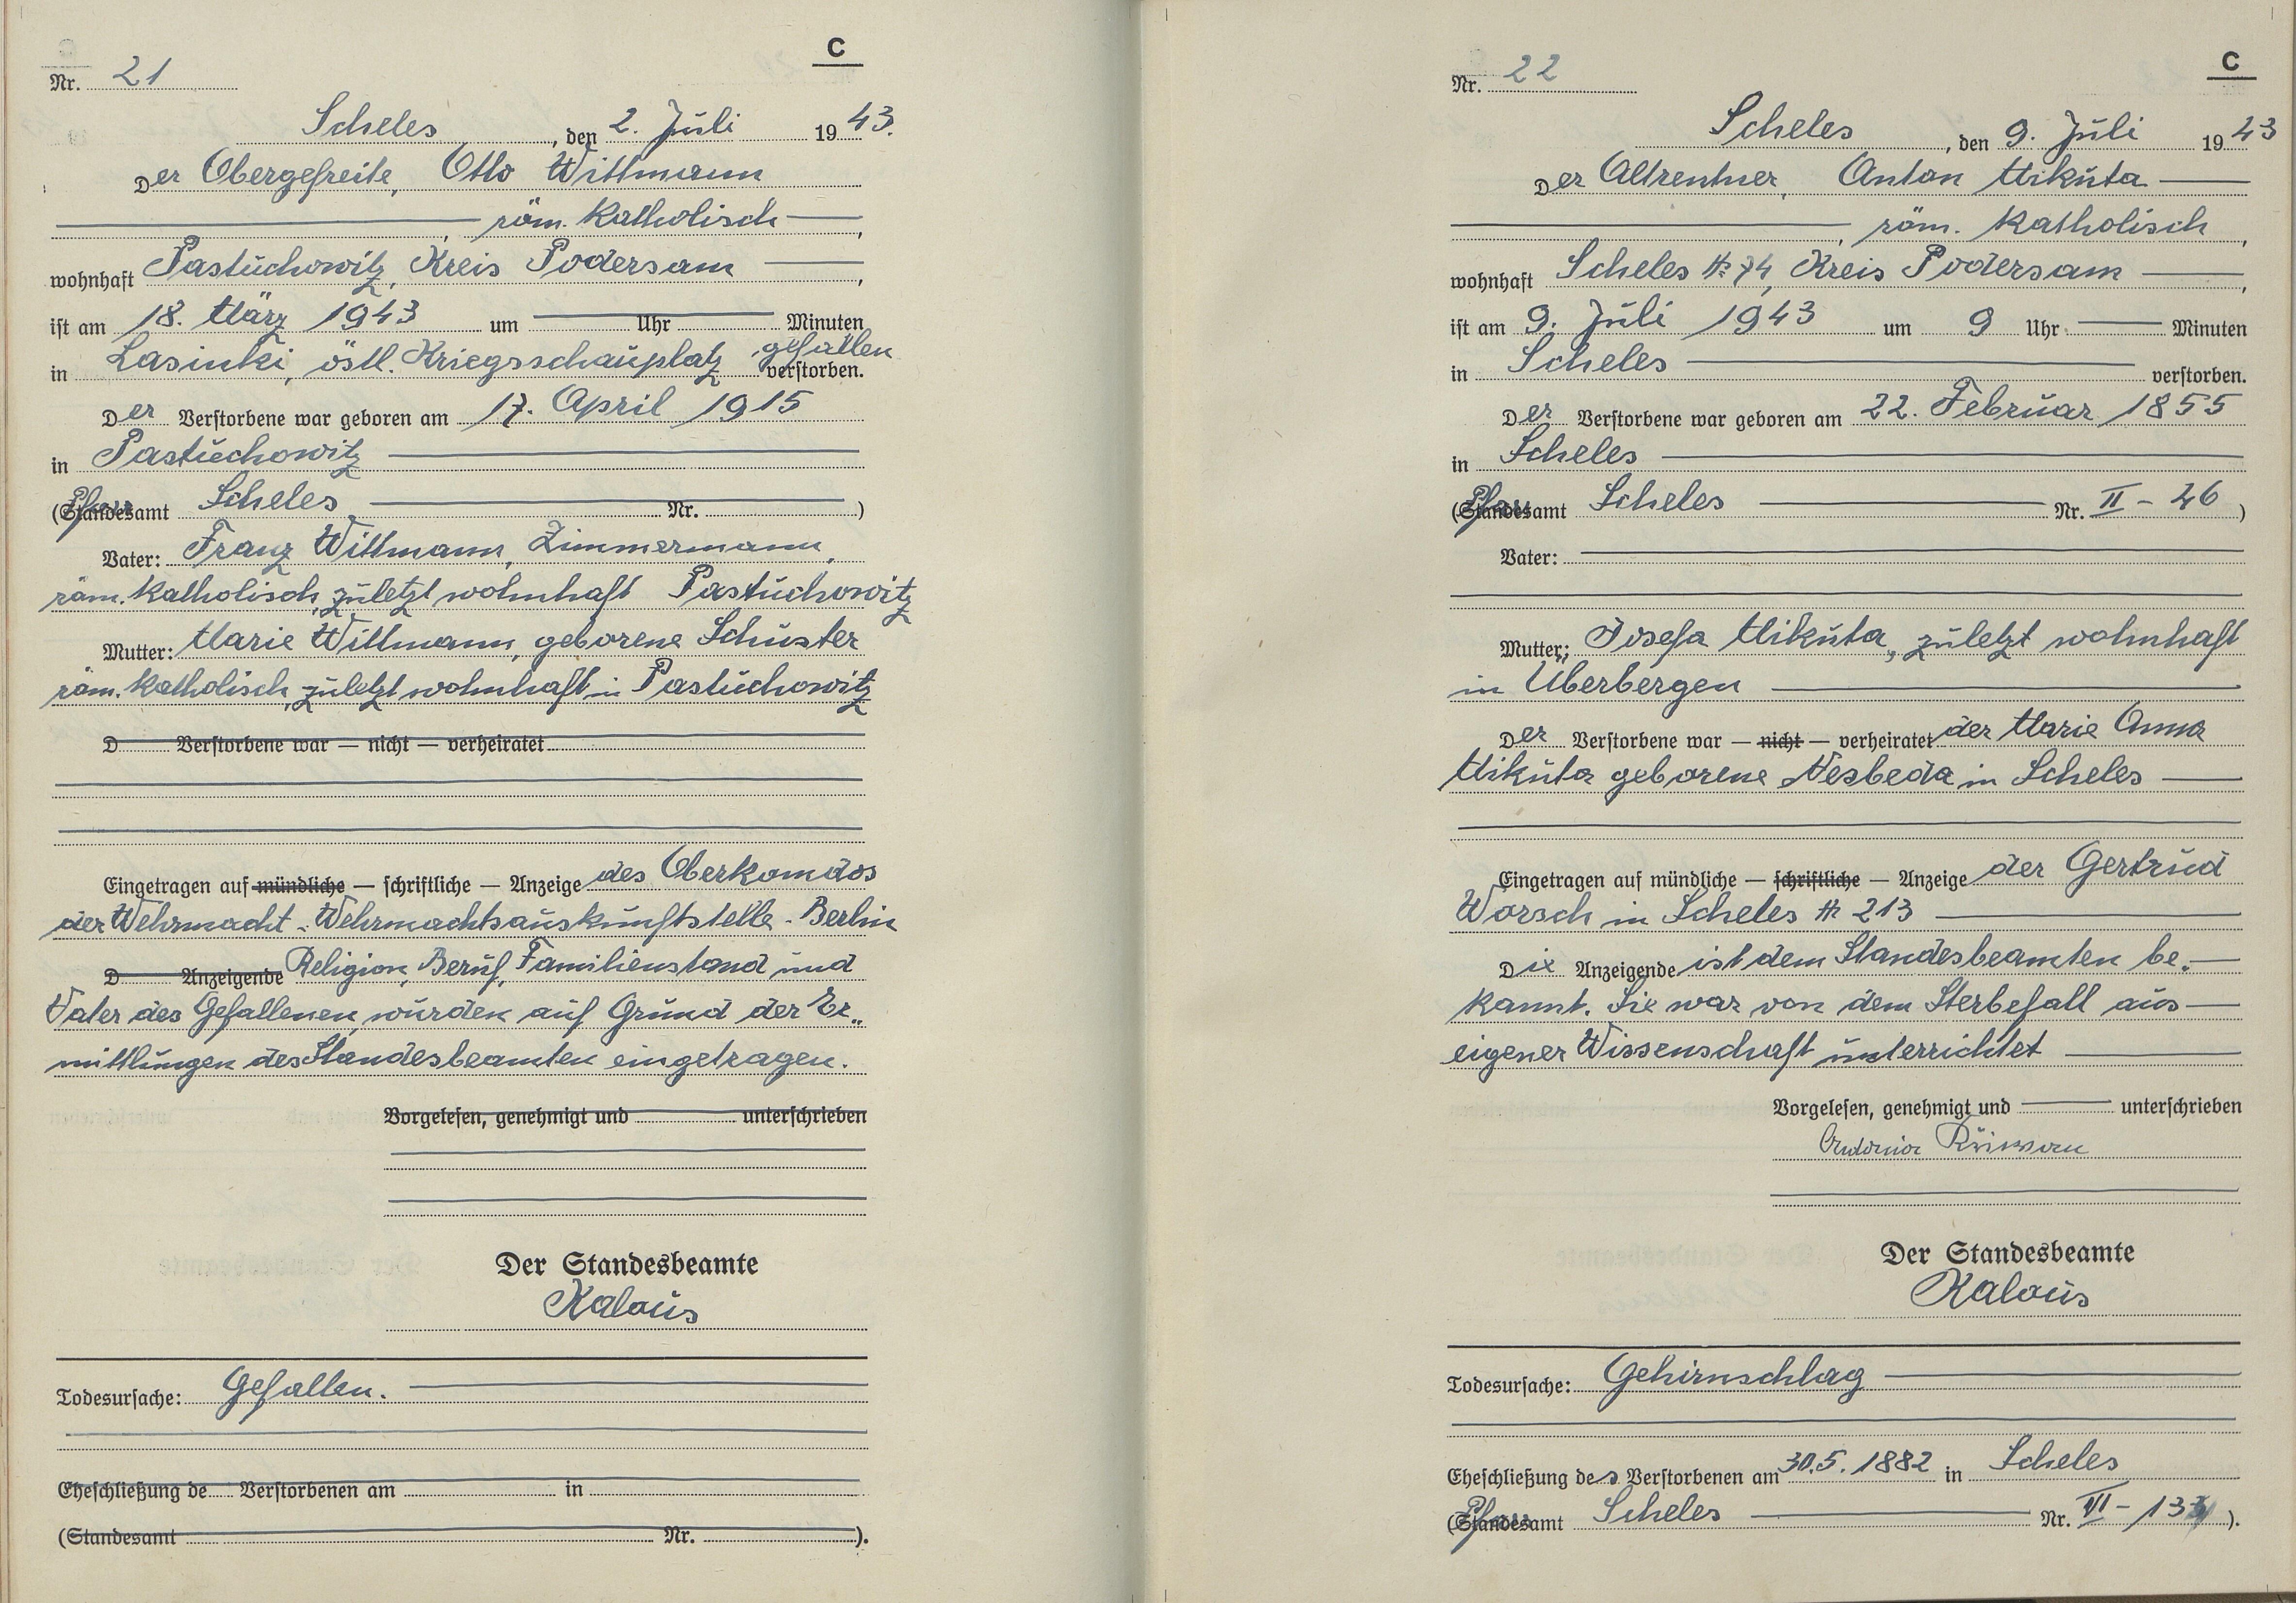 C
Nr. 21
Scheles, den 2. Juli 1943.
Der Obergefreite, Otto Wittmann
, röm. Katholisch,
wohnhaft Pastuchowitz, Kreis Podersam,
ist am 18. März 1943 um Uhr Minuten
gefallen
in Lasinki, östl. Kriegsschauplatz verstorben.
Der Verstorbene war geboren am 17. April 1915
in Pastuchowitz
(Standesamt Scheles Nr. )
Vater: Franz Wittmann, Zimmermann,
röm. Katholisch, zuletzt wohnhaft Pastuchowitz
Mutter: Marie Wittmann, geborene Schuster
röm. Katholisch, zuletzt wohnhaft in Pastuchowitz
D Verstorbene war — nicht — verheiratet
Eingetragen auf mündliche — schriftliche — Anzeige des Oberkomdos
der Wehrmacht - Wehrmachtsauskunftstelle - Berlin
D Anzeigende Religion, Beruf, Familienstand und
Vater des Gefallenen, wurden auf Grund der Er„
mittlungen des Standesbeamten eingetragen.
Vorgelesen, genehmigt und unterschrieben
Der Standesbeamte
Kalous
Todesursache: Gefallen.
Eheschließung de Verstorbenen am in
(Standesamt Nr. ).
C
Nr. 22
Scheles, den 9. Juli 1943
Der Altrentner, Anton Mikuta
, röm. Katholisch,
wohnhaft Scheles № 74, Kreis Podersam,
ist am 9. Juli 1943 um 9 Uhr Minuten
in Scheles verstorben.
Der Verstorbene war geboren am 22. Februar 1855
in Scheles
(Standesamt Scheles Nr. II - 46)
Vater:
Mutter: Josefa Mikuta, zuletzt wohnhaft
in Überbergen
Der Verstorbene war — nicht — verheiratet der Marie Anna
Mikuta geborene Nesbeda in Scheles
Eingetragen auf mündliche — schriftliche — Anzeige der Gertrud
Worsch in Scheles № 213
Die Anzeigende ist dem Standesbeamten be„
kannt. Sie war von dem Sterbefall aus
eigener Wissenschaft unterrichtet
Vorgelesen, genehmigt und unterschrieben
Der Standesbeamte
Kalous
Todesursache: Gehirnschlag
Eheschließung des Verstorbenen am 30.5.1882 in Scheles
(Standesamt Scheles Nr. VI - 13).